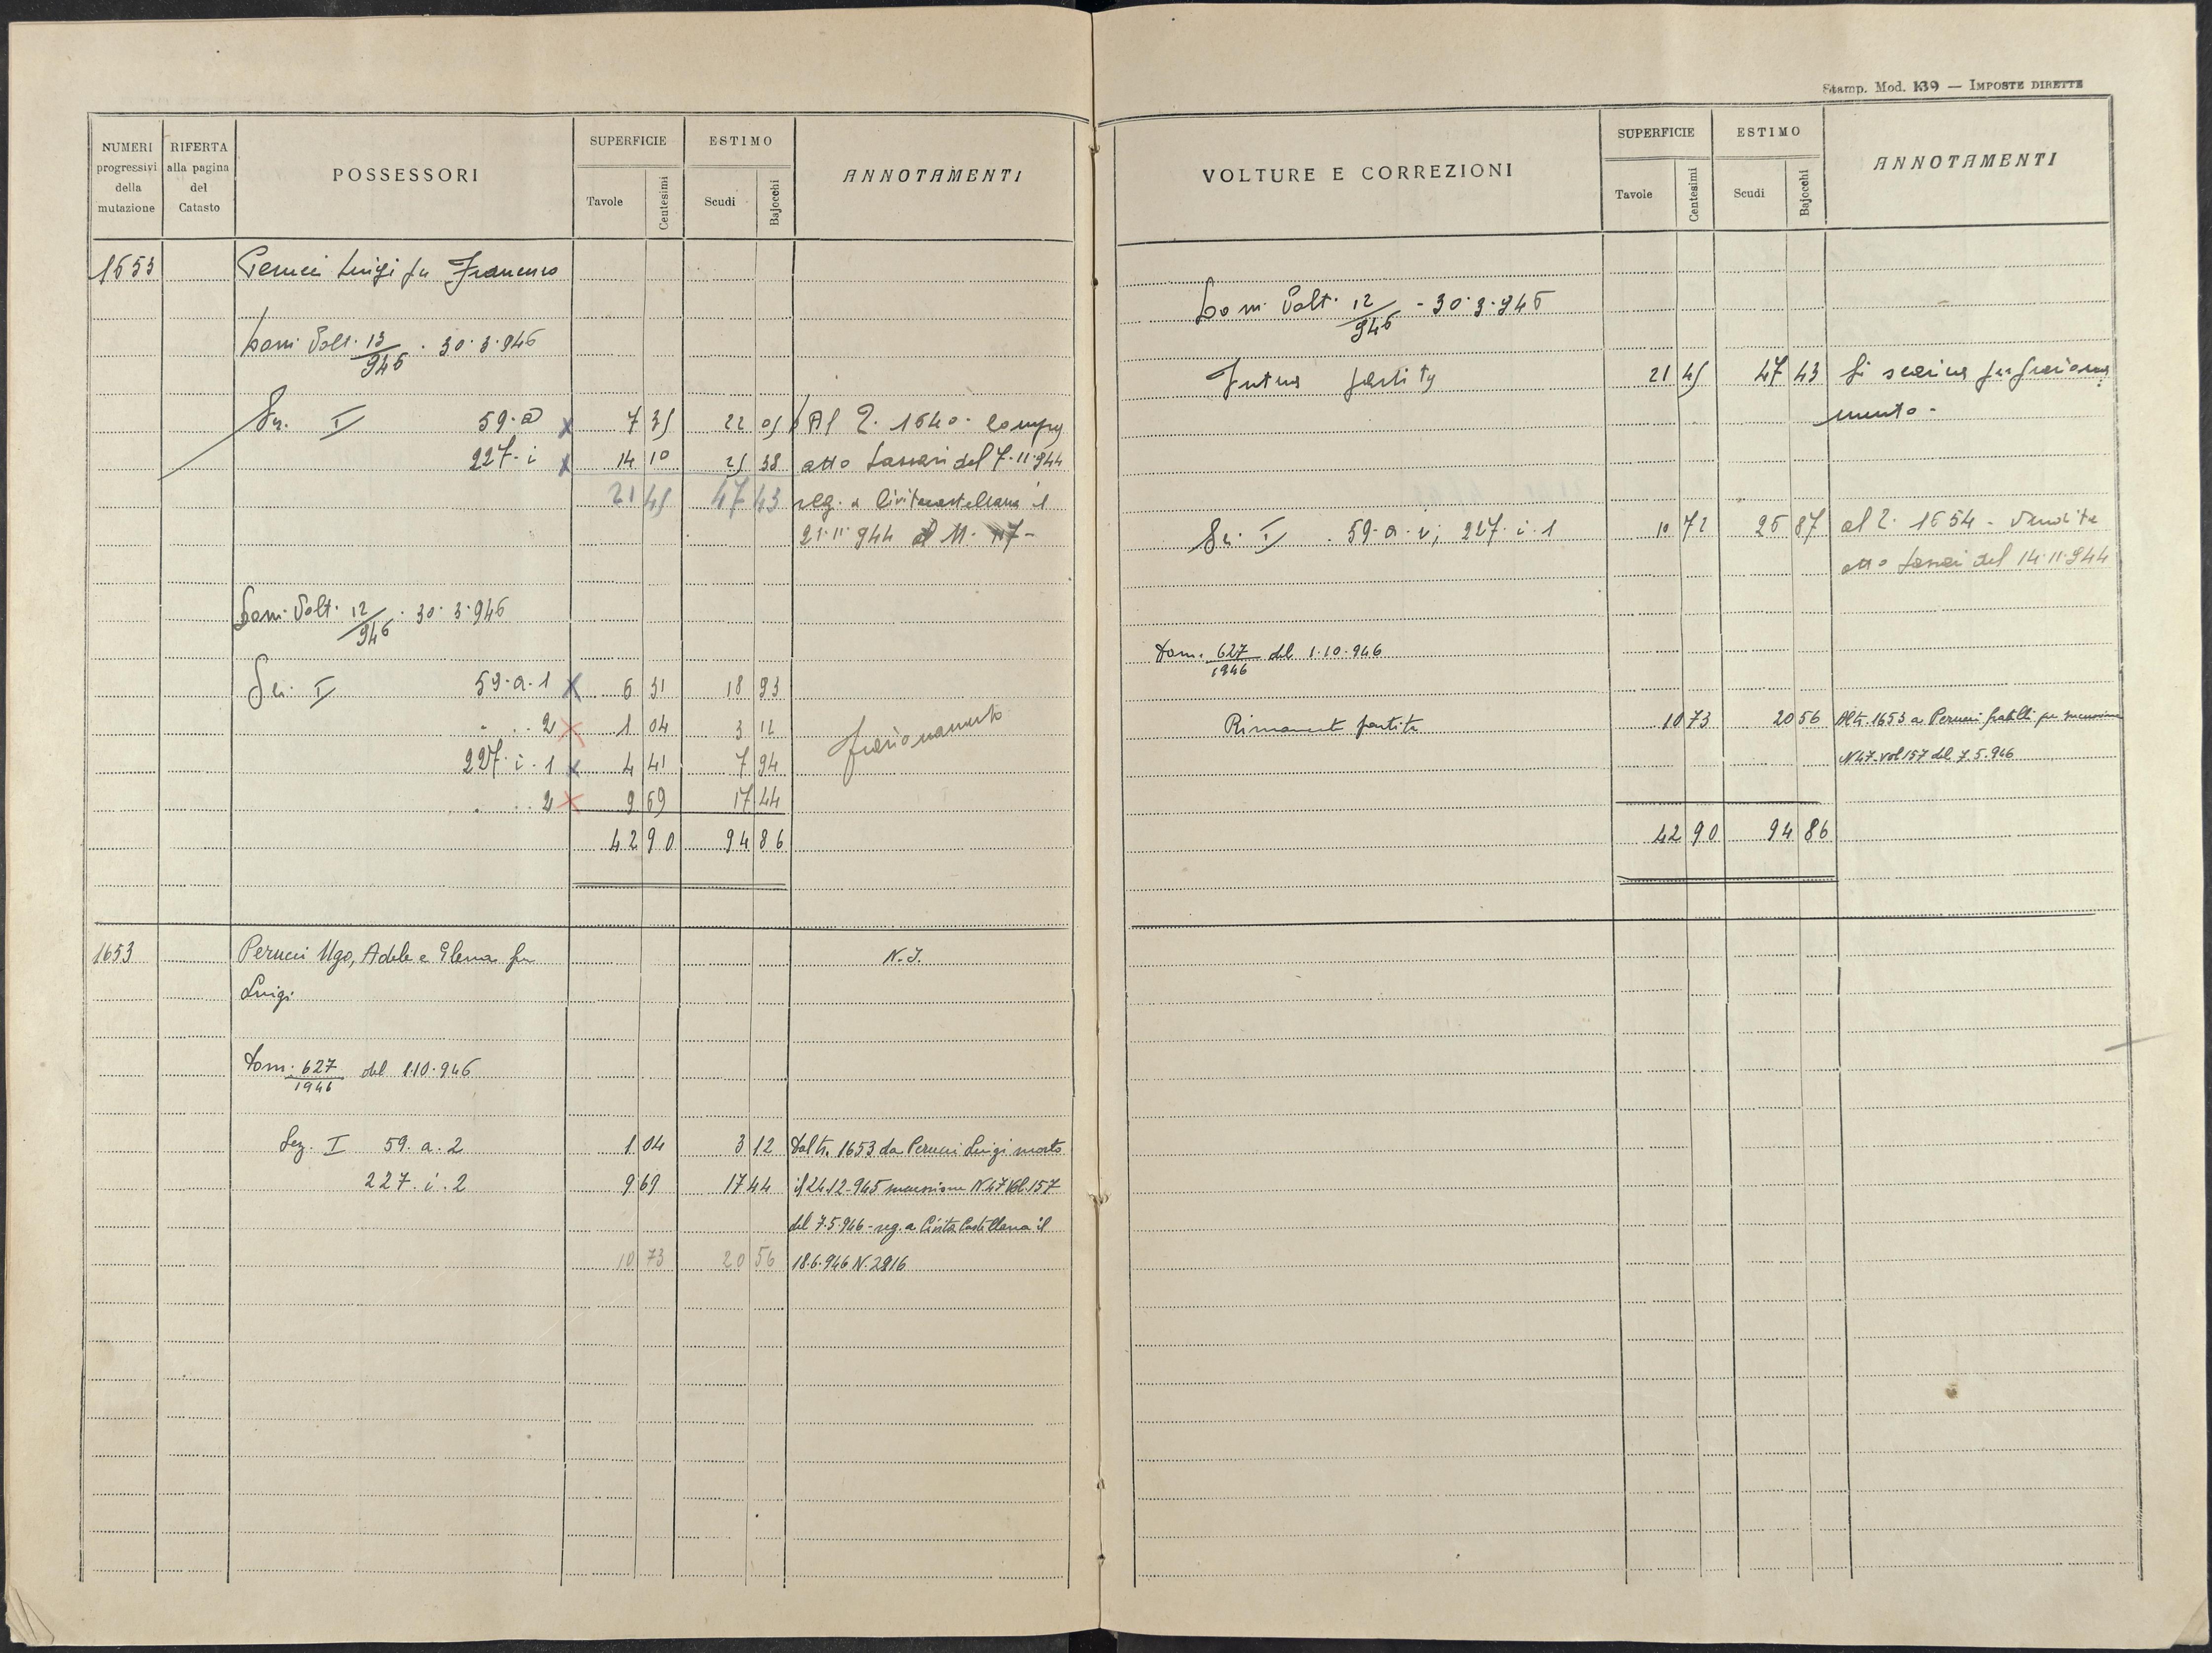 Stamp. Mod. 139 — IMPOSTE DIRETTE
NUMERI progressivi della mutazione
RIFERTA alla pagina del Catasto
POSSESSORI
SUPERFICIE
Tavole
Centesimi
ESTIMO
Scudi
Bajocchi
ANNOTAMENTI
1653 Perucci Luigi fu Francesco
Dom. Volt. 13/946 · 30·3·946
Sez. I 59·a x 7 35 22 05 Al 2. 1640. compra
227·i x 14 10 25 38 atto Lassari del 7·11·944
21 45 47 43 reg. a Civitacastellana il
21·11·944 al N. 117 -
Dom. Volt. 12/946 · 30·3·946
Sez. I 59·a·1 x 6 31 18 93
" .. 2 x 1 04 3 12
Frazionamento
227·i·1 x 4 41 7 94
" .. 2 x 9 69 17 44
42 90 94 86
1653 Perucci Ugo, Adele e Elena fu N.I.
Luigi
Dom. 627/1946 del 1.10.946
Sez. I 59.a.2 1 04 3 12 Dal tr. 1653 da Perucci Luigi morto
227.i.2 9 69 17 44 il 24.12.945 successione N.47 Vol. 157
del 7.5.946 - reg. a Civita Castellana il
10 73 20 56 18.6.946 N.2816
VOLTURE E CORREZIONI
SUPERFICIE
Tavole
Centesimi
ESTIMO
Scudi
Bajocchi
ANNOTAMENTI
Dom. Volt. 12/946 - 30·3·946
Intera partita 21 45 47 43 Si scarica per fraziona
mento -
Sez. I 59·a·1; 227·i·1 10 72 26 87 al 2. 1654 - Vendita
atto Lassari del 14·11·944
Dom. 627/1946 del 1.10.946
Rimanente partita 10 73 20 56 Al tr. 1653 a Perucci fratelli per successione
N 47 - vol 157 del 7.5.946
42 90 94 86